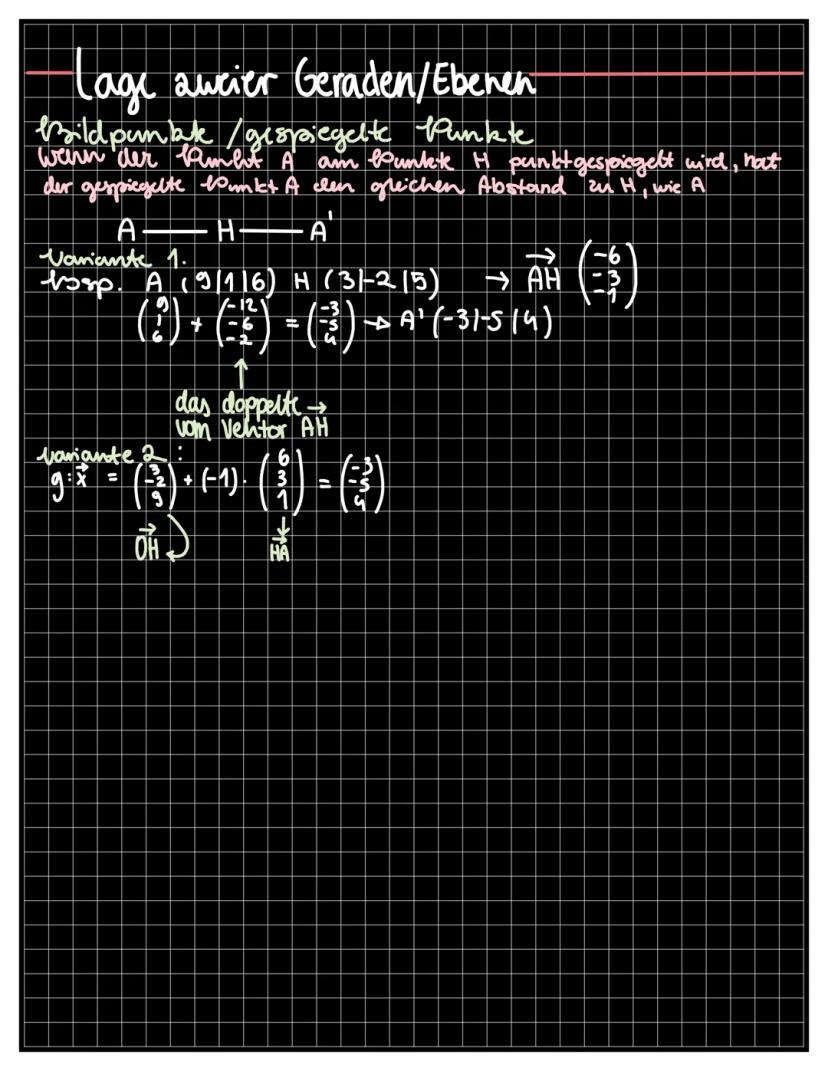 Lage zweier Geraden/Ebenen
Bildpunkte / gespiegelte Punkte
wenn der Punkt A am Punkte H punktgespiegelt wird, hat
der gespiegelte Punkt A den gleichen Abstand zu H, wie A
A — H — A'
Variante 1.
bsp. A (9|1|6) H (3|-2|5) → \vec{AH} (-6 -3 -1)
(9 1 6) + (-12 -6 -2) = (-3 -5 4) → A' (-3|-5|4)
↑
das doppelte
vom Vektor \vec{AH}
Variante 2:
g: \vec{x} = (3 -2 9) + (-1) · (6 3 1) = (-3 -5 4)
\vec{OH} \vec{HA}